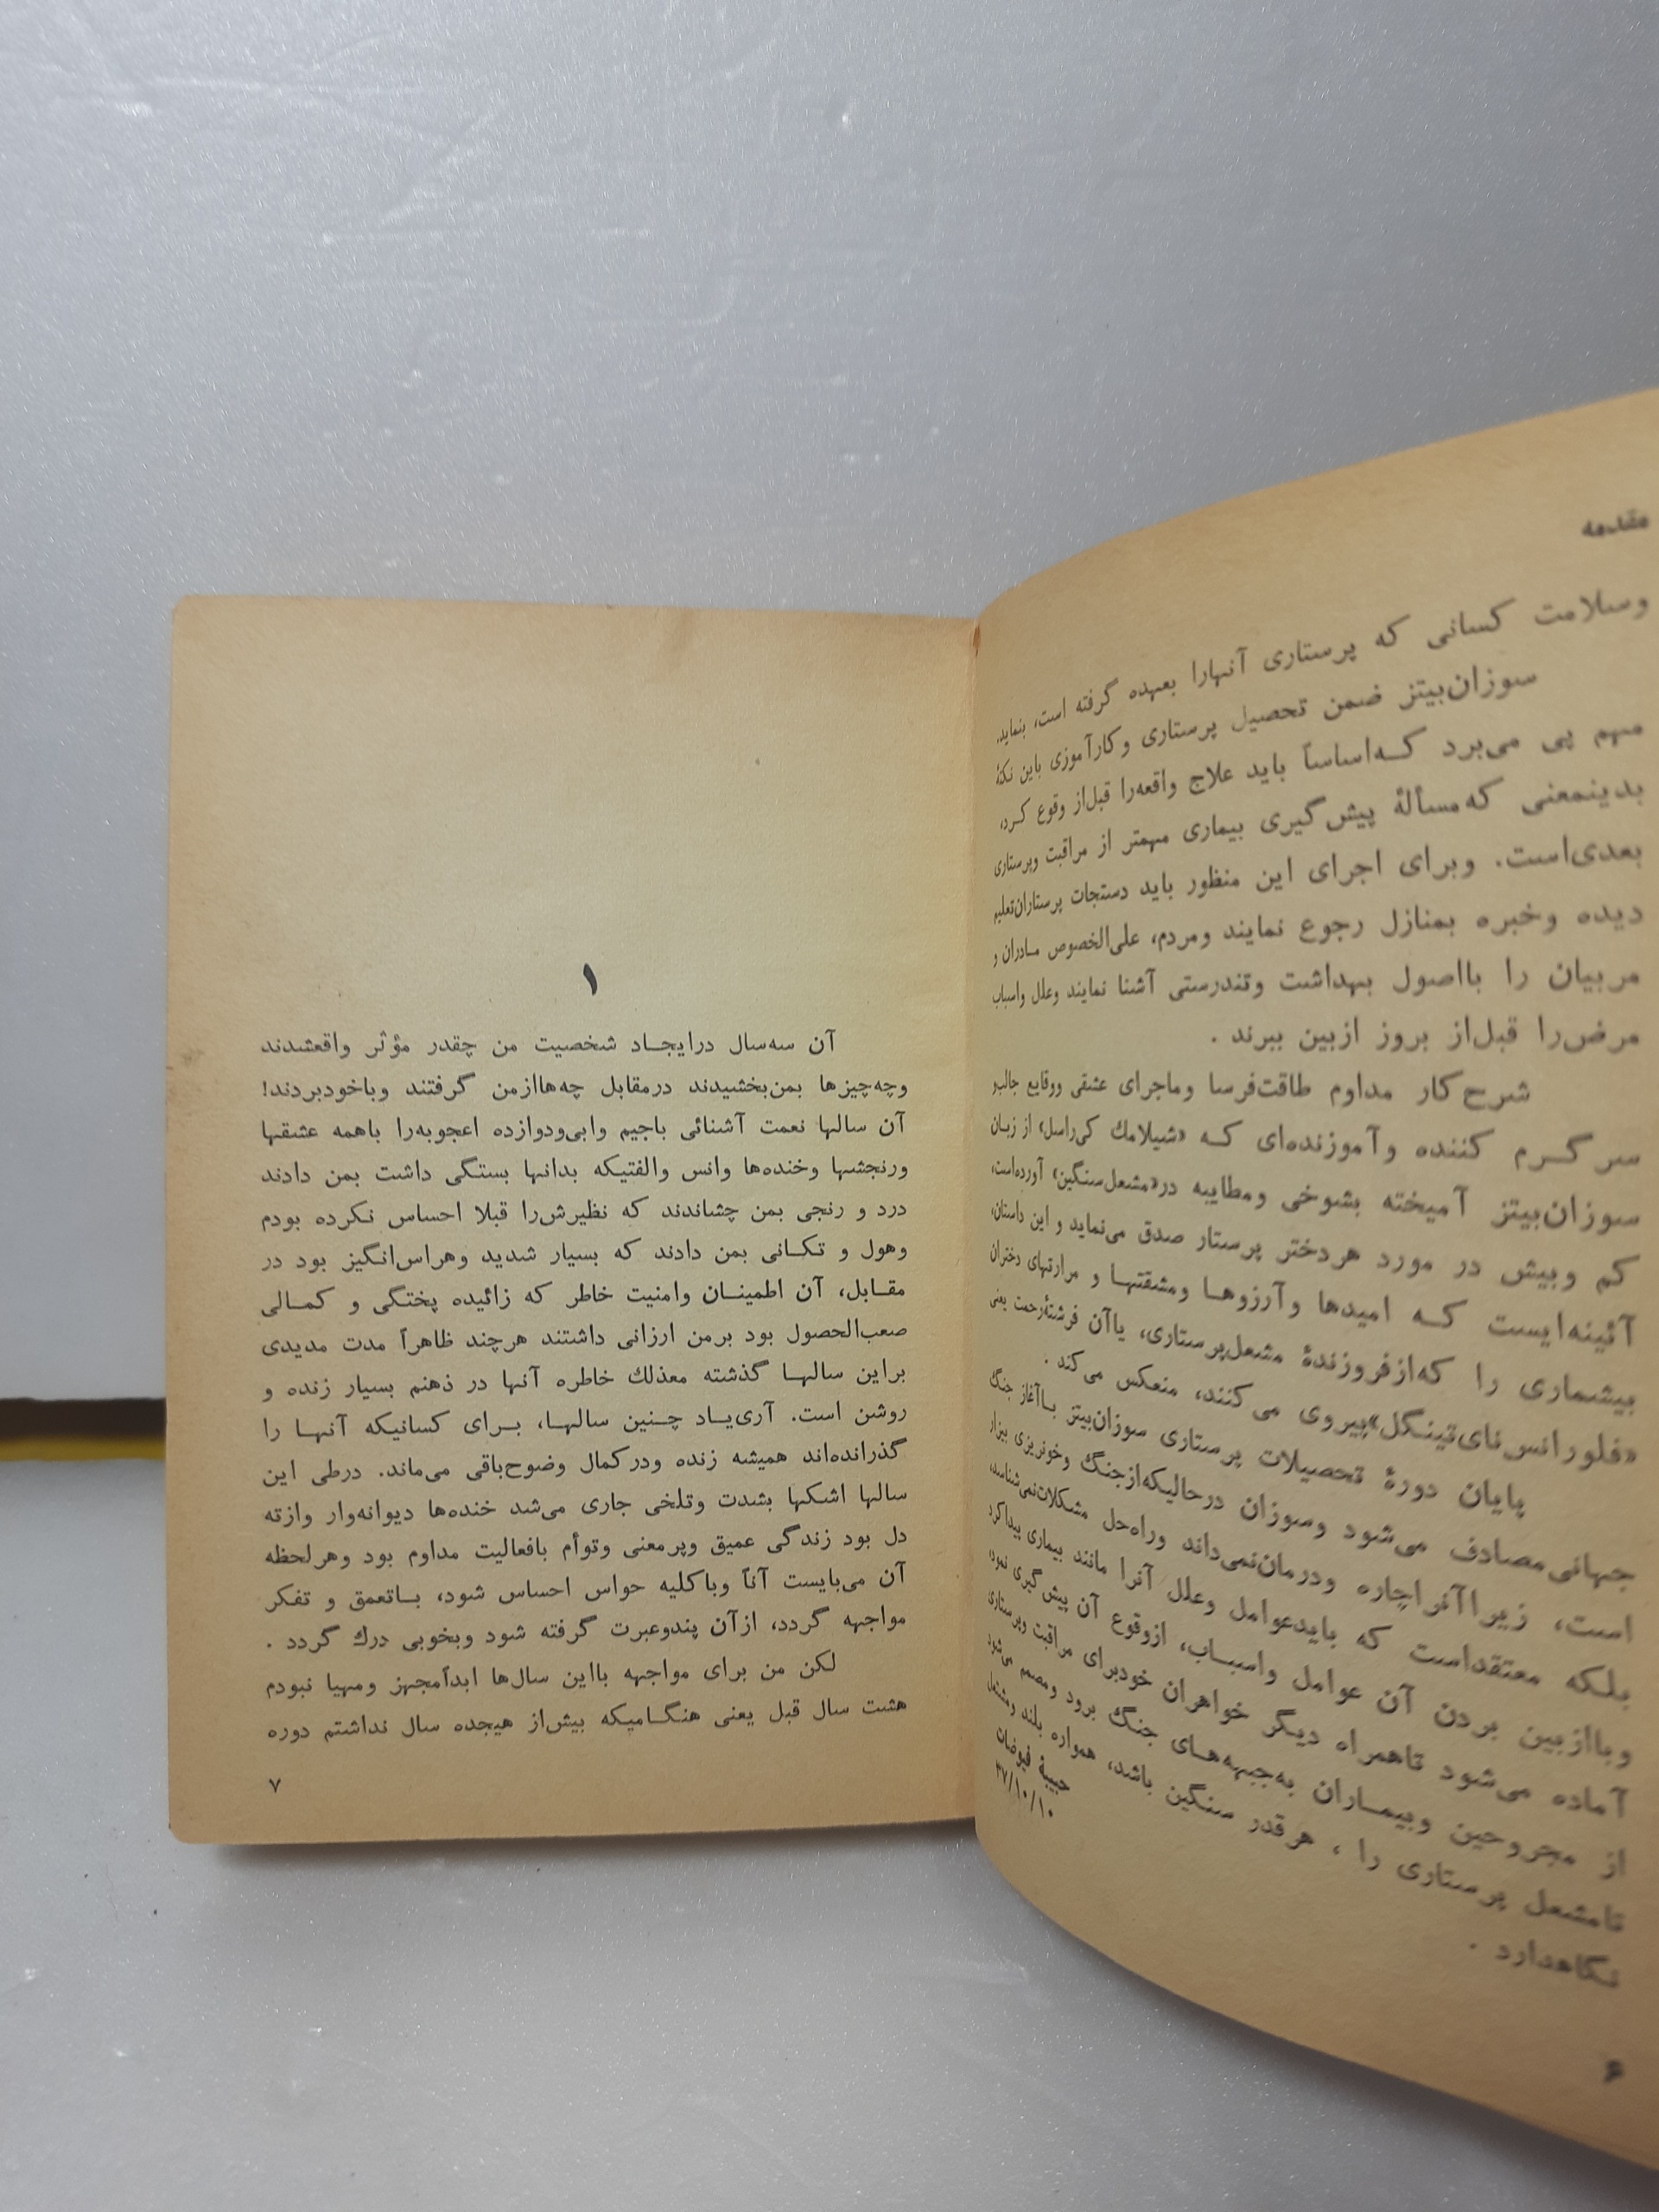 مقدمه
وسلامت کسانی که پرستاری آنهارا بعهده گرفته است، بنماید.
سوزان‌بیتز ضمن تحصیل پرستاری وکارآموزی باین نکتهٔ
مهم پی می‌برد که‌اساساً باید علاج واقعه‌را قبل‌از وقوع کرد،
بدینمعنی که‌مسألهٔ پیش‌گیری بیماری مهمتر از مراقبت وپرستاری
بعدی‌است. وبرای اجرای این منظور باید دستجات پرستاران‌تعلیم
دیده وخبره بمنازل رجوع نمایند ومردم، علی‌الخصوص مادران و
مربیان را بااصول بهداشت وتندرستی آشنا نمایند وعلل واسباب
مرض‌را قبل‌از بروز ازبین ببرند .
شرح‌کار مداوم طاقت‌فرسا وماجرای عشقی ووقایع جالب‌و
سرگرم کننده وآموزنده‌ای که «شیلامك کی‌راسل» از زبان
سوزان‌بیتز آمیخته بشوخی ومطایبه در«مشعل‌سنگین» آورده‌است،
کم وبیش در مورد هردختر پرستار صدق می‌نماید و این داستان،
آئینه‌ایست که امیدها وآرزوها ومشقتها و مرارتهای دختران
بیشماری را که‌ازفروزندهٔ مشعل‌پرستاری، یاآن فرشتهٔ‌رحمت یعنی
«فلورانس‌نای‌تینگل»پیروی می‌کنند، منعکس می‌کند .
پایان دورهٔ تحصیلات پرستاری سوزان‌بیتز باآغاز جنگ
جهانی‌مصادف می‌شود وسوزان درحالیکه‌ازجنگ وخونریزی بیزار
است، زیراآنراچاره ودرمان‌نمی‌داند وراه‌حل مشکلات‌نمی‌شناسد،
بلکه معتقداست که بایدعوامل وعلل آنرا مانند بیماری پیداکرد
وباازبین بردن آن عوامل واسباب، ازوقوع آن پیش‌گیری نمود،
آماده می‌شود تاهمراه دیگر خواهران خودبرای مراقبت وپرستاری
از مجروحین وبیماران به‌جبهه‌های جنگ برود ومصمم می‌شود
تامشعل پرستاری را ، هرقدر سنگین باشد، همواره بلند ومشتعل
نگاهدارد .
حبیبهٔ فیوضات
۳۷/۱۰/۱۰
۶
۱
آن سه‌سال درایجاد شخصیت من چقدر مؤثر واقعشدند
وچه‌چیزها بمن‌بخشیدند درمقابل چه‌هاازمن گرفتند وباخودبردند!
آن سالها نعمت آشنائی باجیم وابی‌ودوازده اعجوبه‌را باهمه عشقها
ورنجشها وخنده‌ها وانس والفتیکه بدانها بستگی داشت بمن دادند
درد و رنجی بمن چشاندند که نظیرش‌را قبلا احساس نکرده بودم
وهول و تکانی بمن دادند که بسیار شدید وهراس‌انگیز بود در
مقابل، آن اطمینان وامنیت خاطر که زائیده پختگی و کمالی
صعب‌الحصول بود برمن ارزانی داشتند هرچند ظاهراً مدت مدیدی
براین سالها گذشته معذلك خاطره آنها در ذهنم بسیار زنده و
روشن است. آری‌یاد چنین سالها، برای کسانیکه آنها را
گذرانده‌اند همیشه زنده ودرکمال وضوح‌باقی می‌ماند. درطی این
سالها اشکها بشدت وتلخی جاری می‌شد خنده‌ها دیوانه‌وار وازته
دل بود زندگی عمیق وپرمعنی وتوأم بافعالیت مداوم بود وهرلحظه
آن می‌بایست آناً وباکلیه حواس احساس شود، باتعمق و تفکر
مواجهه گردد، ازآن پندوعبرت گرفته شود وبخوبی درك گردد .
لکن من برای مواجهه بااین سال‌ها ابداًمجهز ومهیا نبودم
هشت سال قبل یعنی هنگامیکه بیش‌از هیجده سال نداشتم دوره
۷